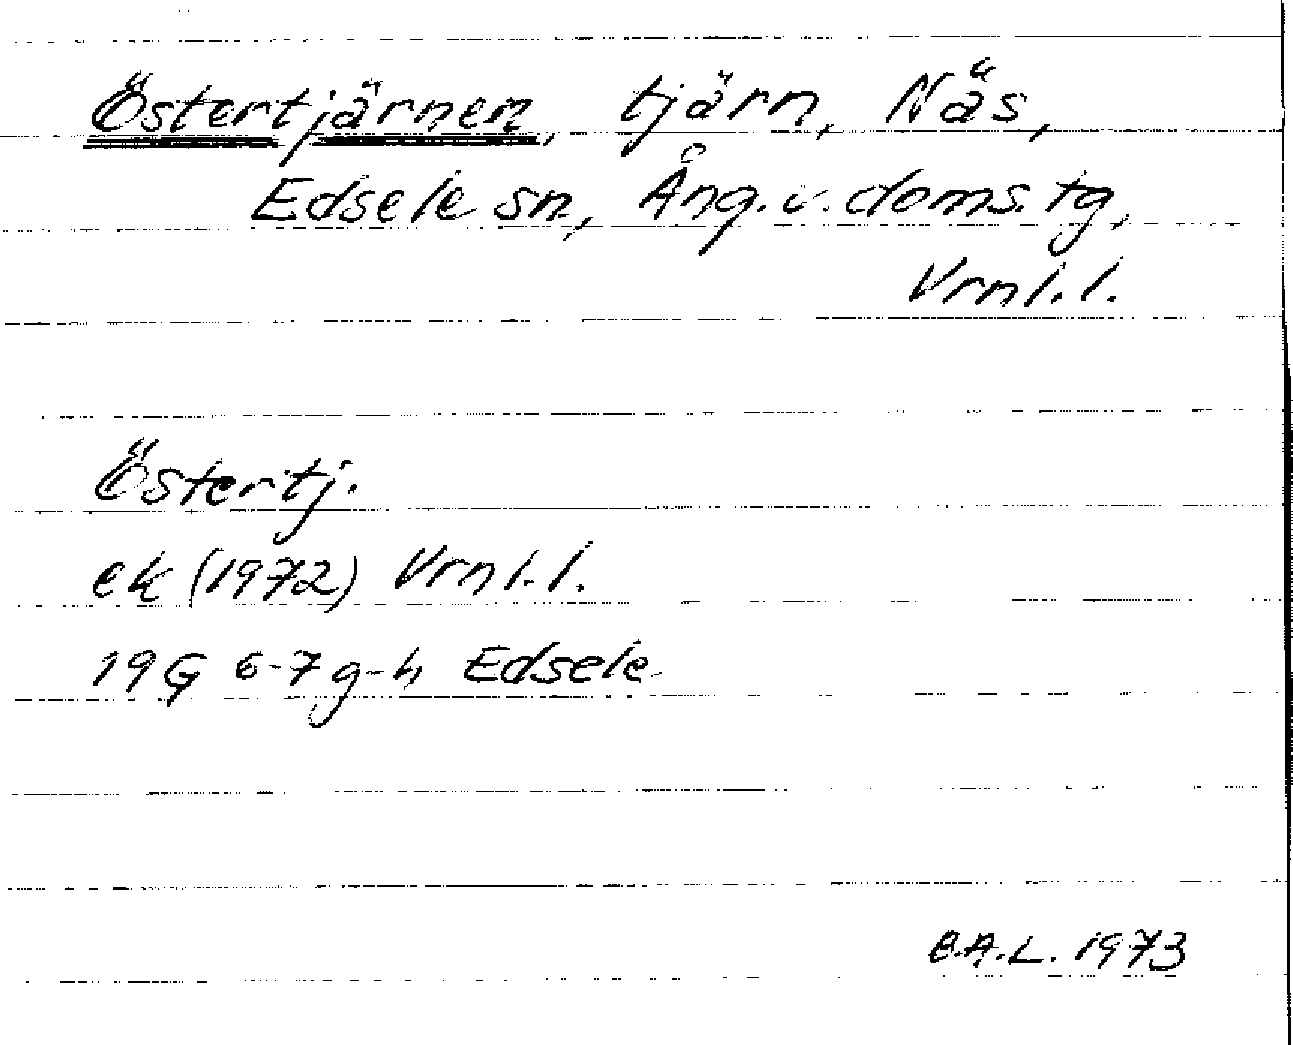 Östertjärnen, tjärn, Näs,
Edsele sn, Ång. v. doms. tg,
Vrnl. l.
Östertj.
ek (1972) Vrnl. l.
19G 6-7 g-h Edsele
B.A.L. 1973